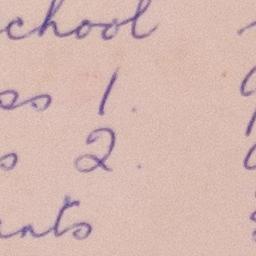 chool
ss 1.
s 2.
ants